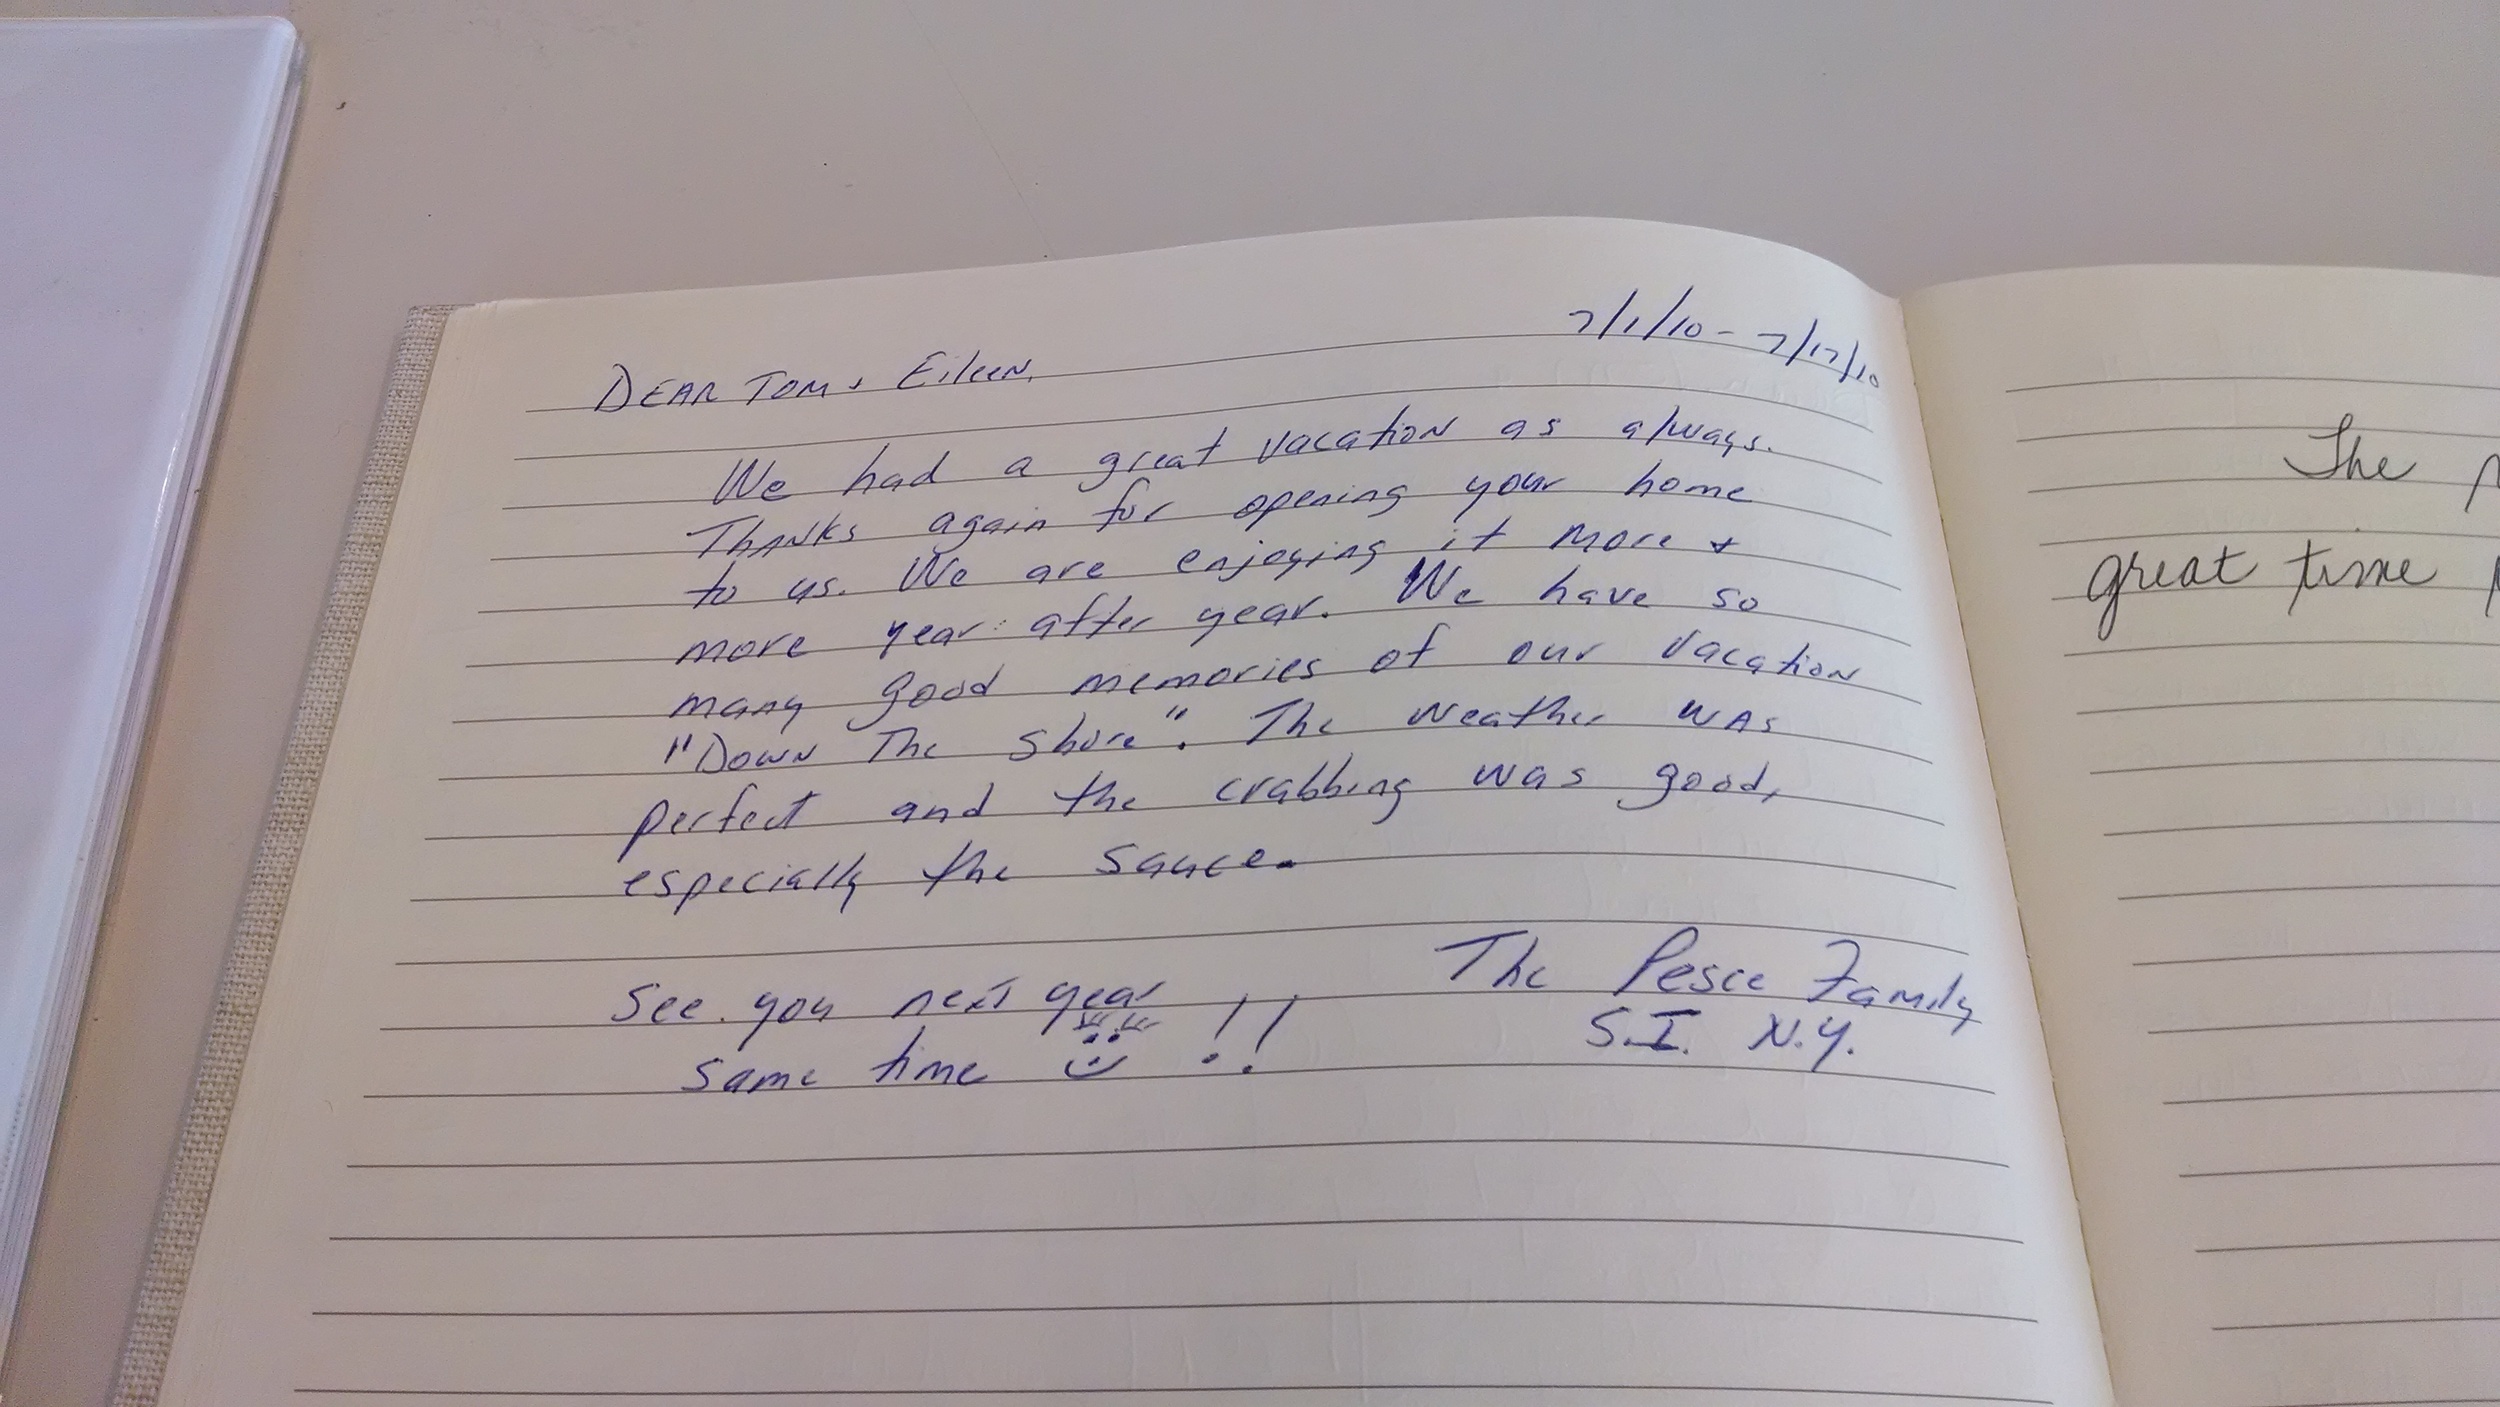 7/1/10 - 7/17/10
DEAR TOM + Eileen,
We had a great vacation as always.
Thanks again for opening your home
to us. We are enjoying it more +
more year after year. We have so
many good memories of our vacation
"Down The Shore". The weather was
perfect and the crabbing was good,
especially the sauce.
The Pesce Family
S.I. N.Y.
See you next year
same time !!
The
great time